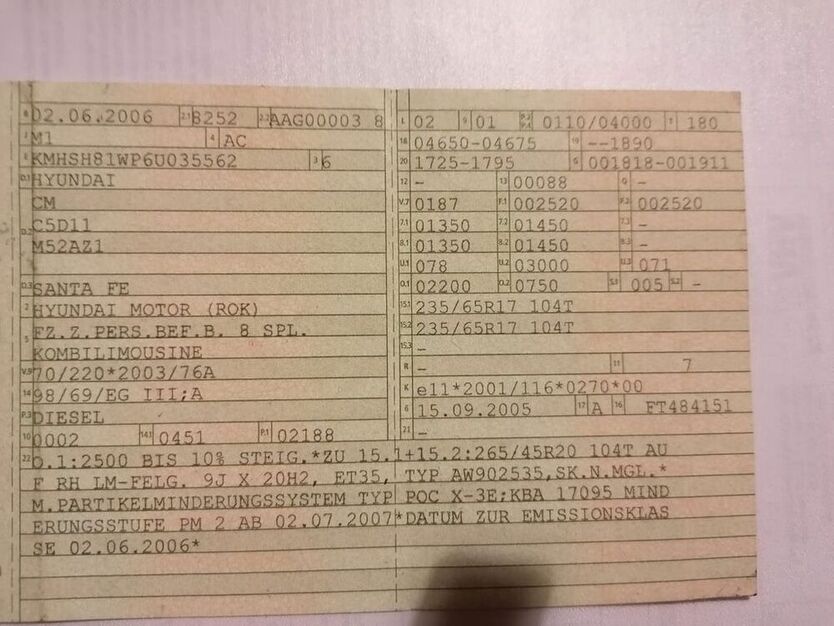 B 02.06.2006 2.1 8252 2.2 AAG00003 8
J M1 4 AC
E KMHSH81WP6U035562 3 6
D.1 HYUNDAI
CM
D.2 C5D11
M52AZ1
D.3 SANTA FE
2 HYUNDAI MOTOR (ROK)
5 FZ.Z.PERS.BEF.B. 8 SPL.
KOMBILIMOUSINE
V.9 70/220*2003/76A
14 98/69/EG III;A
P.3 DIESEL
10 0002 14.1 0451 P.1 02188
L 02 9 01 P.2 P.4 0110/04000 T 180
18 04650-04675 19 --1890
20 1725-1795 G 001818-001911
12 - 13 00088 Q -
V.7 0187 F.1 002520 F.2 002520
7.1 01350 7.2 01450 7.3 -
8.1 01350 8.2 01450 8.3 -
U.1 078 U.2 03000 U.3 071
O.1 02200 O.2 0750 S.1 005 S.2 -
15.1 235/65R17 104T
15.2 235/65R17 104T
15.3 -
R - 11 7
K e11*2001/116*0270*00
6 15.09.2005 17 A 16 FT484151
21 -
22 O.1:2500 BIS 10% STEIG.*ZU 15.1+15.2:265/45R20 104T AU
F RH LM-FELG. 9J X 20H2, ET35, TYP AW902535,SK.N.MGL.*
M.PARTIKELMINDERUNGSSYSTEM TYP POC X-3E;KBA 17095 MIND
ERUNGSSTUFE PM 2 AB 02.07.2007*DATUM ZUR EMISSIONSKLAS
SE 02.06.2006*